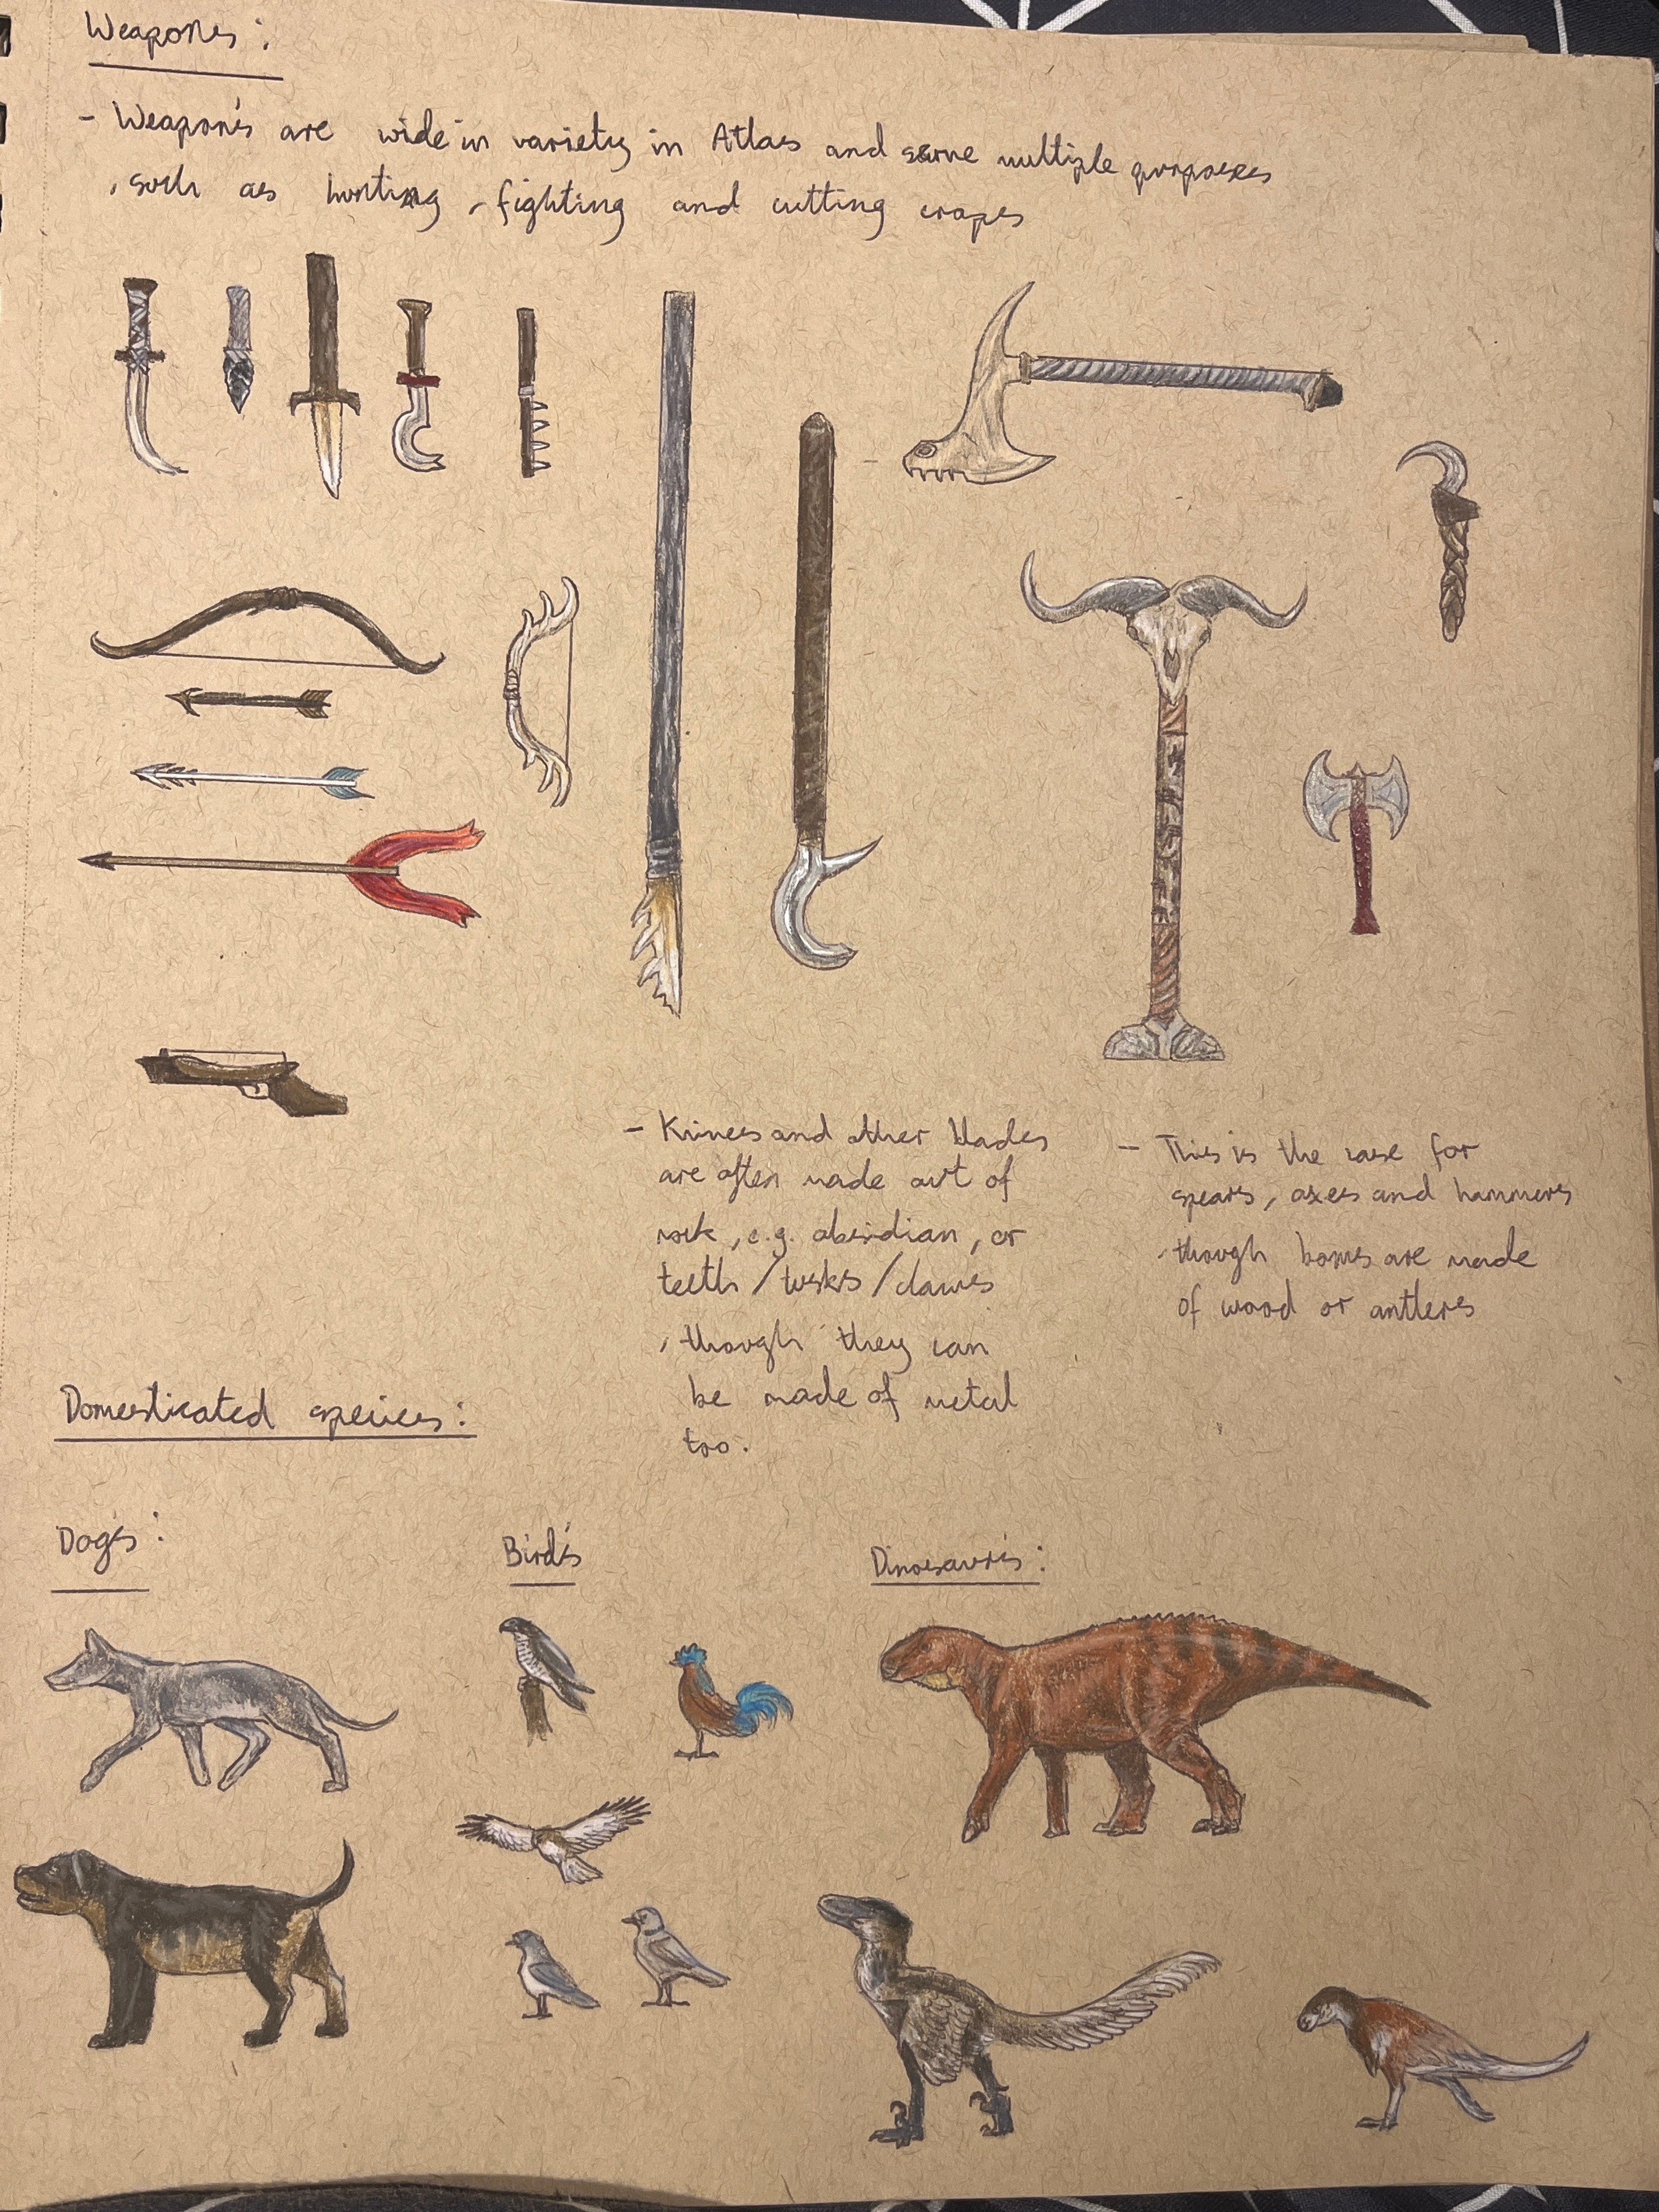 Weapones :
- Weapon's are wide in variety in Atlas and serve multiple purposes
, such as hunting , fighting and cutting crops
- Knives and other blades
are often made out of
rock, e.g. obsidian, or
teeth / tusks / claws
, though they can
be made of metal
too.
- This is the case for
spears, axes and hammers
, though bows are made
of wood or antlers
Domesticated species :
Dog's :
Bird's
Dinosaur's :